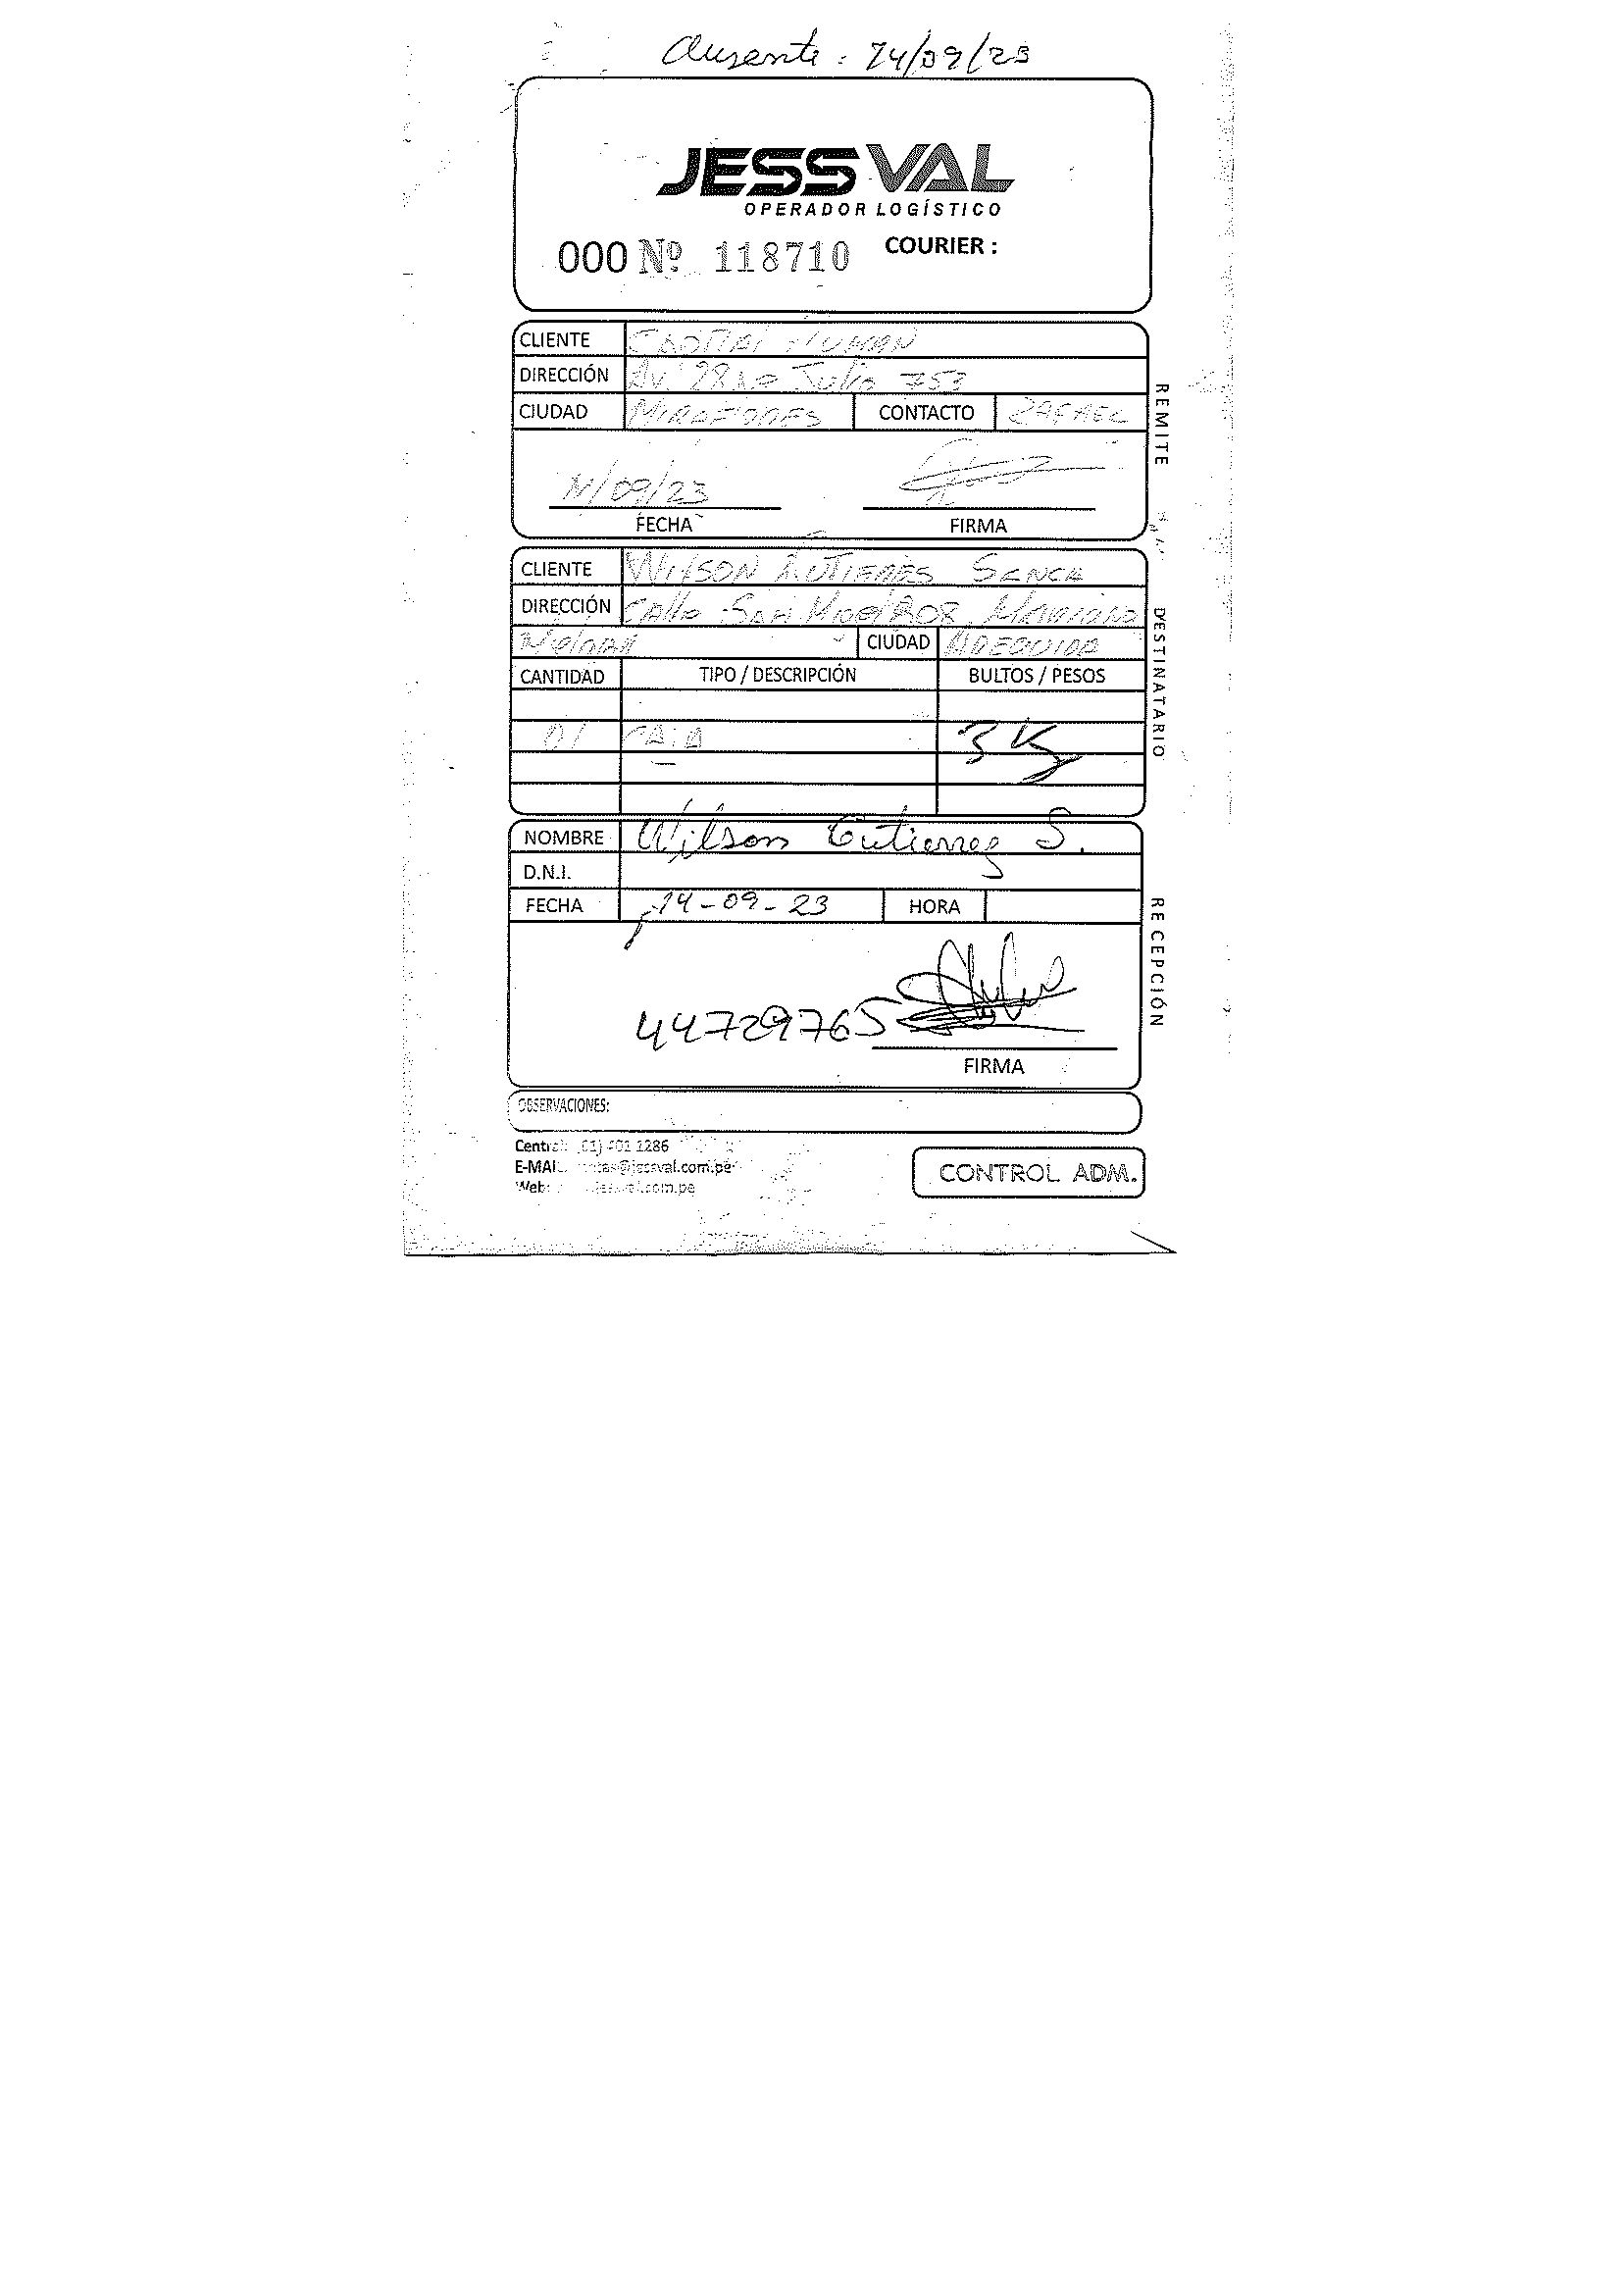 Ausente : 14/09/23
JESSVAL
OPERADOR LOGÍSTICO
000 Nº 118710 COURIER :
CLIENTE CAPITAL HUMAN
DIRECCIÓN Av. 28 de Julio 753
CIUDAD MIRAFLORES CONTACTO RAFAEL
REMITE
/09/23
FECHA FIRMA
CLIENTE WILSON GUTIERRES SENCA
DIRECCIÓN Calle San Miguel Mariano
Melgar CIUDAD AREQUIPA
CANTIDAD TIPO / DESCRIPCIÓN BULTOS / PESOS
DESTINATARIO
01 CAJA 3 K
NOMBRE Wilson Gutierrez S.
D.N.I.
FECHA 14-09-23 HORA
RECEPCIÓN
44729765
FIRMA
OBSERVACIONES:
Central: (01) 1286
E-MAIL: ventas@jessval.com.pe
Web: jessval.com.pe
CONTROL ADM.